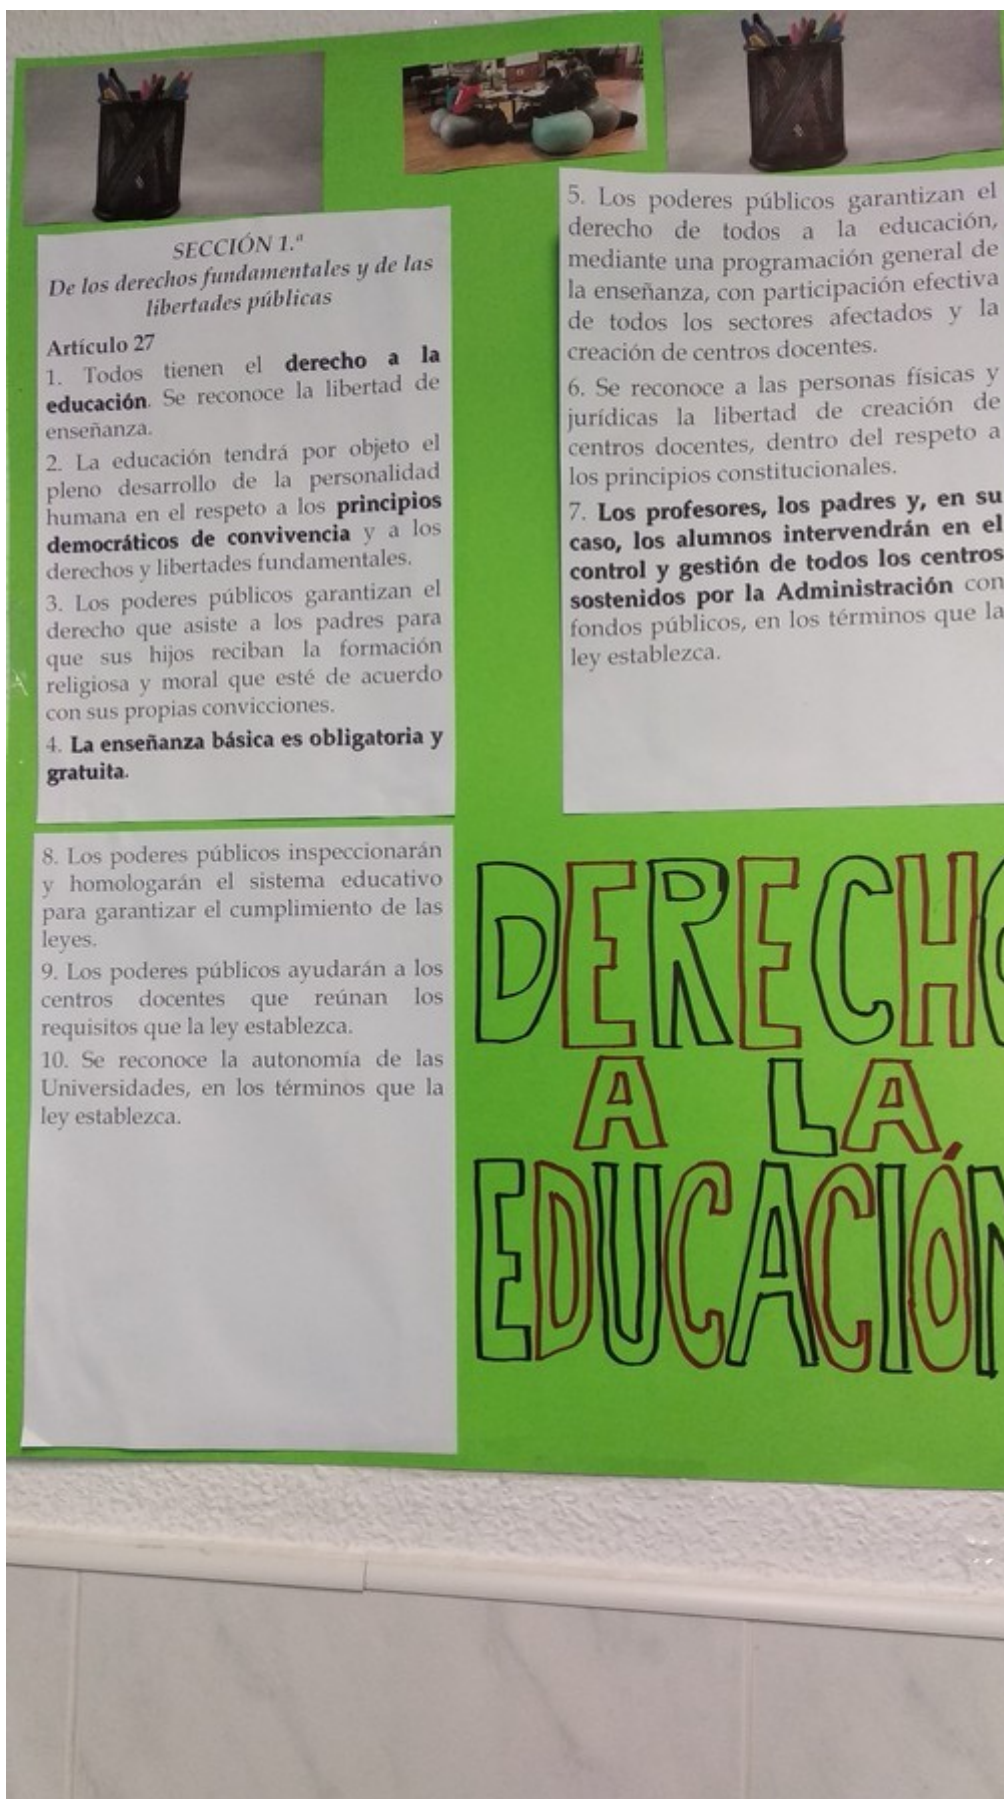 SECCIÓN 1.ª
De los derechos fundamentales y de las
libertades públicas
Artículo 27
1. Todos tienen el derecho a la
educación. Se reconoce la libertad de
enseñanza.
2. La educación tendrá por objeto el
pleno desarrollo de la personalidad
humana en el respeto a los principios
democráticos de convivencia y a los
derechos y libertades fundamentales.
3. Los poderes públicos garantizan el
derecho que asiste a los padres para
que sus hijos reciban la formación
religiosa y moral que esté de acuerdo
con sus propias convicciones.
4. La enseñanza básica es obligatoria y
gratuita.
5. Los poderes públicos garantizan el
derecho de todos a la educación,
mediante una programación general de
la enseñanza, con participación efectiva
de todos los sectores afectados y la
creación de centros docentes.
6. Se reconoce a las personas físicas y
jurídicas la libertad de creación de
centros docentes, dentro del respeto a
los principios constitucionales.
7. Los profesores, los padres y, en su
caso, los alumnos intervendrán en el
control y gestión de todos los centros
sostenidos por la Administración con
fondos públicos, en los términos que la
ley establezca.
8. Los poderes públicos inspeccionarán
y homologarán el sistema educativo
para garantizar el cumplimiento de las
leyes.
9. Los poderes públicos ayudarán a los
centros docentes que reúnan los
requisitos que la ley establezca.
10. Se reconoce la autonomía de las
Universidades, en los términos que la
ley establezca.
DERECHO
A LA
EDUCACIÓN